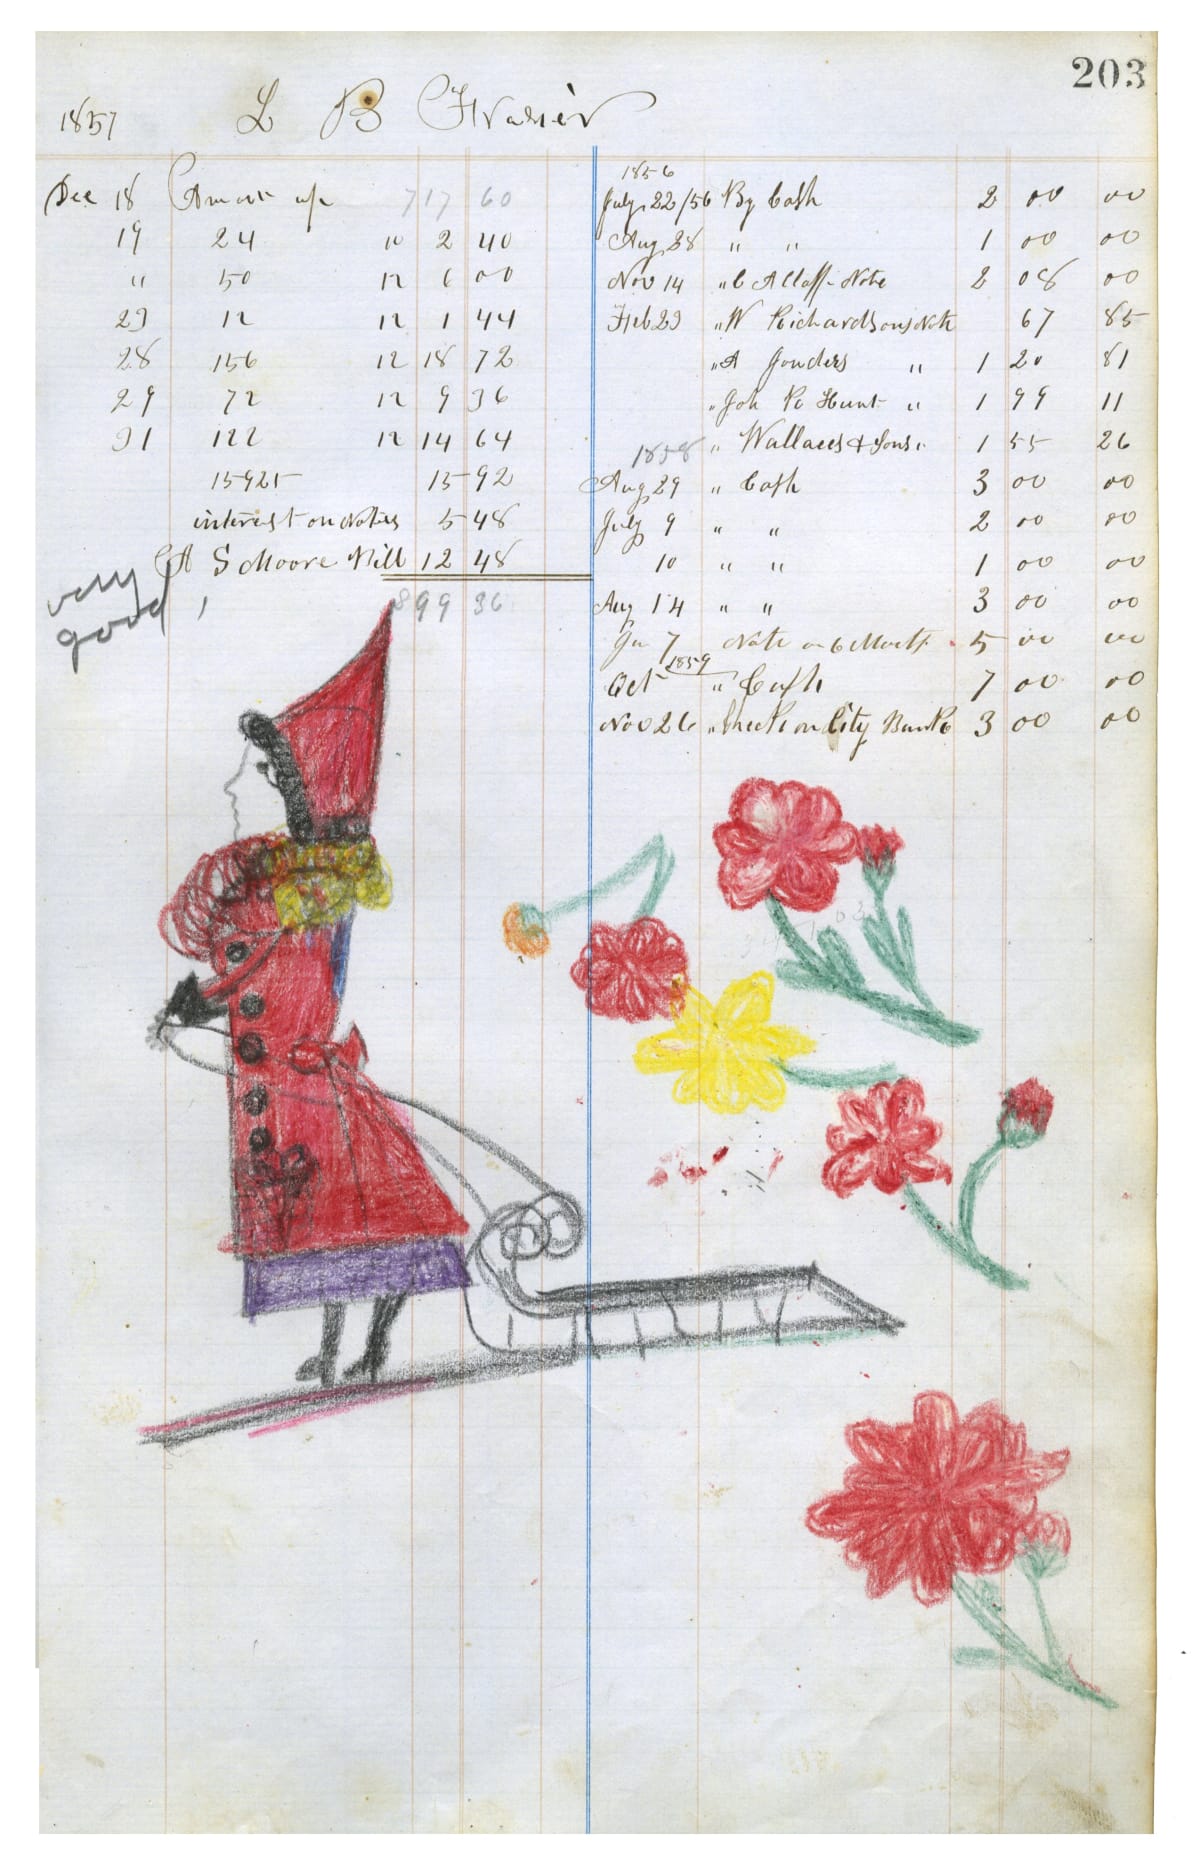 203
1857 L B Frasier
Dec 18 Amount up 717 60
19 24 10 2 40
" 50 12 6 00
23 12 12 1 44
28 156 12 18 72
29 78 12 9 36
31 122 12 14 64
15925 15 92
interest on Notes 5 48
A S Moore Bill 12 48
899 36
very
good
1856
July 22/56 By Cash 2 00 00
Aug 28 " " 1 00 00
Nov 14 " Note 2 08 00
Feb 23 " W Richardsons Note 67 85
" A " 1 20 81
" Joh Hunt " 1 99 11
" Wallaces & Sons " 1 55 26
1858
Aug 29 " Cash 3 00 00
July 9 " " 2 00 00
10 " " 1 00 00
Aug 14 " " 3 00 00
7 Note on 6 Month 5 00 00
1859
Oct " Cash 7 00 00
Nov 26 " Check on City Bank 3 00 00